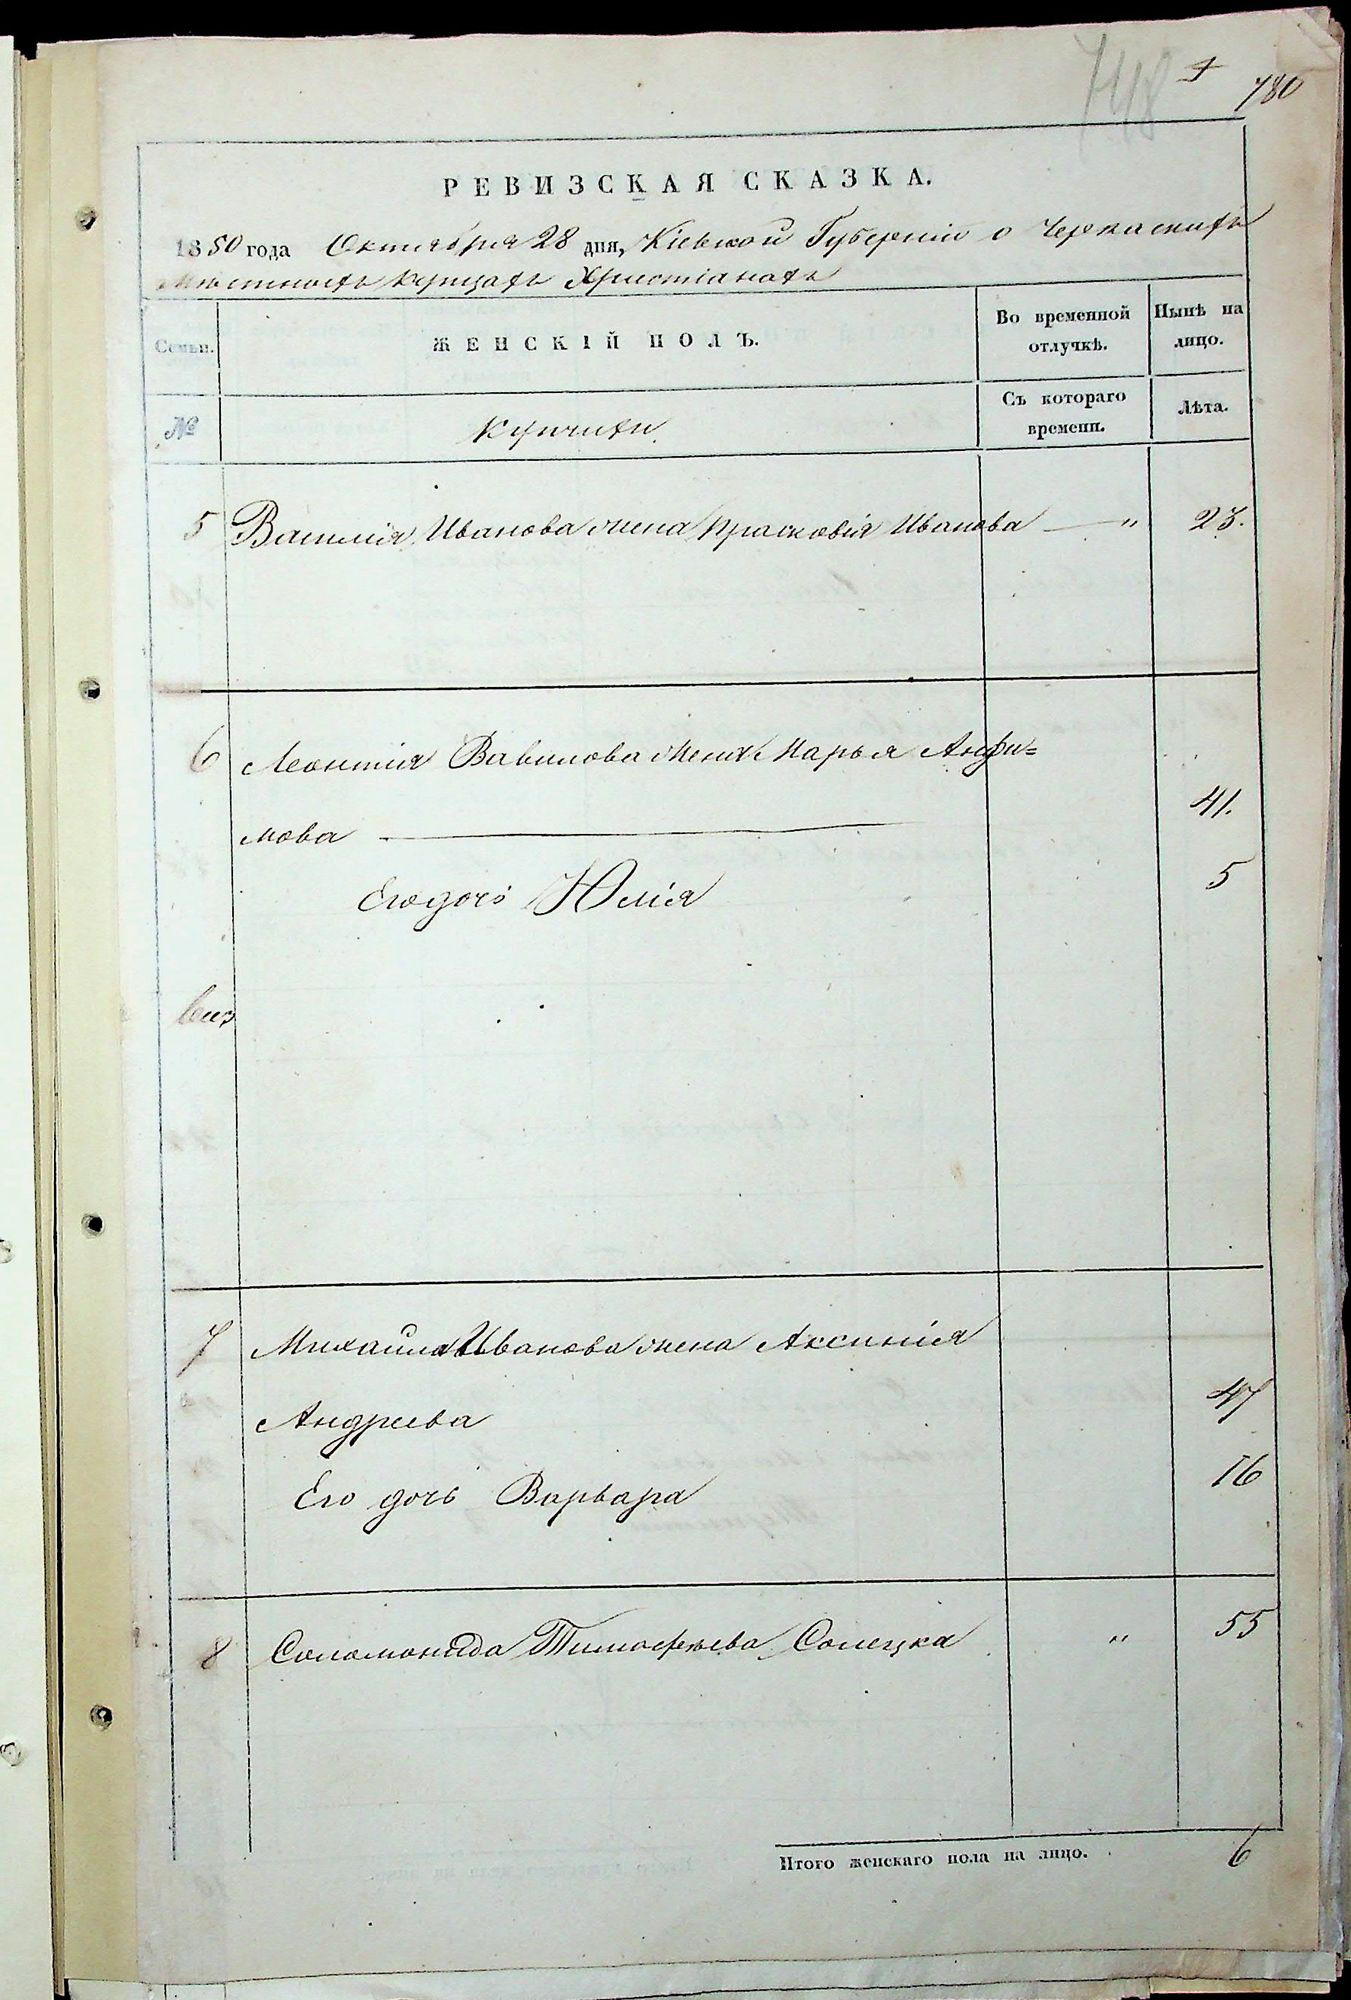 748 780
РЕВИЗСКАЯ СКАЗКА.
1850 года Октября 28 дня, Кіевской Губерніи о Черкаскихъ
Мѣстныхъ купцахъ Христіанахъ
Семьи. ЖЕНСКІЙ ПОЛЪ. Во временной отлучкѣ. Нынѣ на лицо.
№ Купчихи Съ котораго времени. Лѣта.
5 Василія Иванова жена Прасковія Иванова — " 23.
6 Леонтія Вавилова жена Марья Анфи=
мова — 41.
Его дочь Юлія 5
7 Михаила Иванова жена Аксинія
Андреева 47
Его дочь Варвара 16
8 Соломонида Тимофѣева Солецка " 55
Итого женскаго пола на лицо. 6